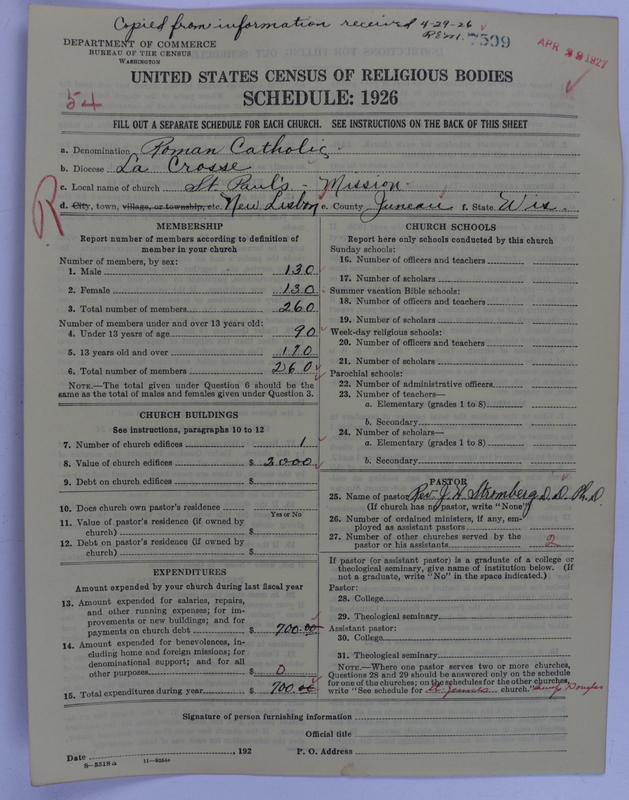 Copied from information received 4-29-26
7599
APR 29 1927
DEPARTMENT OF COMMERCE
BUREAU OF THE CENSUS
WASHINGTON
UNITED STATES CENSUS OF RELIGIOUS BODIES
54
SCHEDULE: 1926
FILL OUT A SEPARATE SCHEDULE FOR EACH CHURCH. SEE INSTRUCTIONS ON THE BACK OF THIS SHEET
a. Denomination Roman Catholic
b. Diocese La Crosse
c. Local name of church St Paul's - Mission
R
d. City, town, village, or township, etc. New Lisbon e. County Juneau f. State Wis.
MEMBERSHIP
Report number of members according to definition of
member in your church
Number of members, by sex:
1. Male 130
2. Female 130
3. Total number of members 260
Number of members under and over 13 years old:
4. Under 13 years of age 90
5. 13 years old and over 170
6. Total number of members 260
NOTE.—The total given under Question 6 should be the
same as the total of males and females given under Question 3.
CHURCH BUILDINGS
See instructions, paragraphs 10 to 12
7. Number of church edifices 1
8. Value of church edifices $ 3000
9. Debt on church edifices $
10. Does church own pastor's residence
Yes or No
11. Value of pastor's residence (if owned by
church) $
12. Debt on pastor's residence (if owned by
church) $
EXPENDITURES
Amount expended by your church during last fiscal year
13. Amount expended for salaries, repairs,
and other running expenses; for im-
provements or new buildings; and for
payments on church debt $ 700.00
14. Amount expended for benevolences, in-
cluding home and foreign missions; for
denominational support; and for all
other purposes $ 0
15. Total expenditures during year $ 700.00
CHURCH SCHOOLS
Report here only schools conducted by this church
Sunday schools:
16. Number of officers and teachers
17. Number of scholars
Summer vacation Bible schools:
18. Number of officers and teachers
19. Number of scholars
Week-day religious schools:
20. Number of officers and teachers
21. Number of scholars
Parochial schools:
22. Number of administrative officers
23. Number of teachers—
a. Elementary (grades 1 to 8)
b. Secondary
24. Number of scholars—
a. Elementary (grades 1 to 8)
b. Secondary
PASTOR
25. Name of pastor Rev. J. H. Stromberg D.D. Ph.D
(If church has no pastor, write "None")
26. Number of ordained ministers, if any, em-
ployed as assistant pastors
27. Number of other churches served by the
pastor or his assistants 2
If pastor (or assistant pastor) is a graduate of a college or
theological seminary, give name of institution below. (If
not a graduate, write "No" in the space indicated.)
Pastor:
28. College
29. Theological seminary
Assistant pastor:
30. College
31. Theological seminary
NOTE.—Where one pastor serves two or more churches,
Questions 28 and 29 should be answered only on the schedule
for one of the churches; on the schedules for the other churches,
write "See schedule for St. James church." Camp Douglas
Signature of person furnishing information
Official title
Date , 192 P. O. Address
8—5518a 11—9264